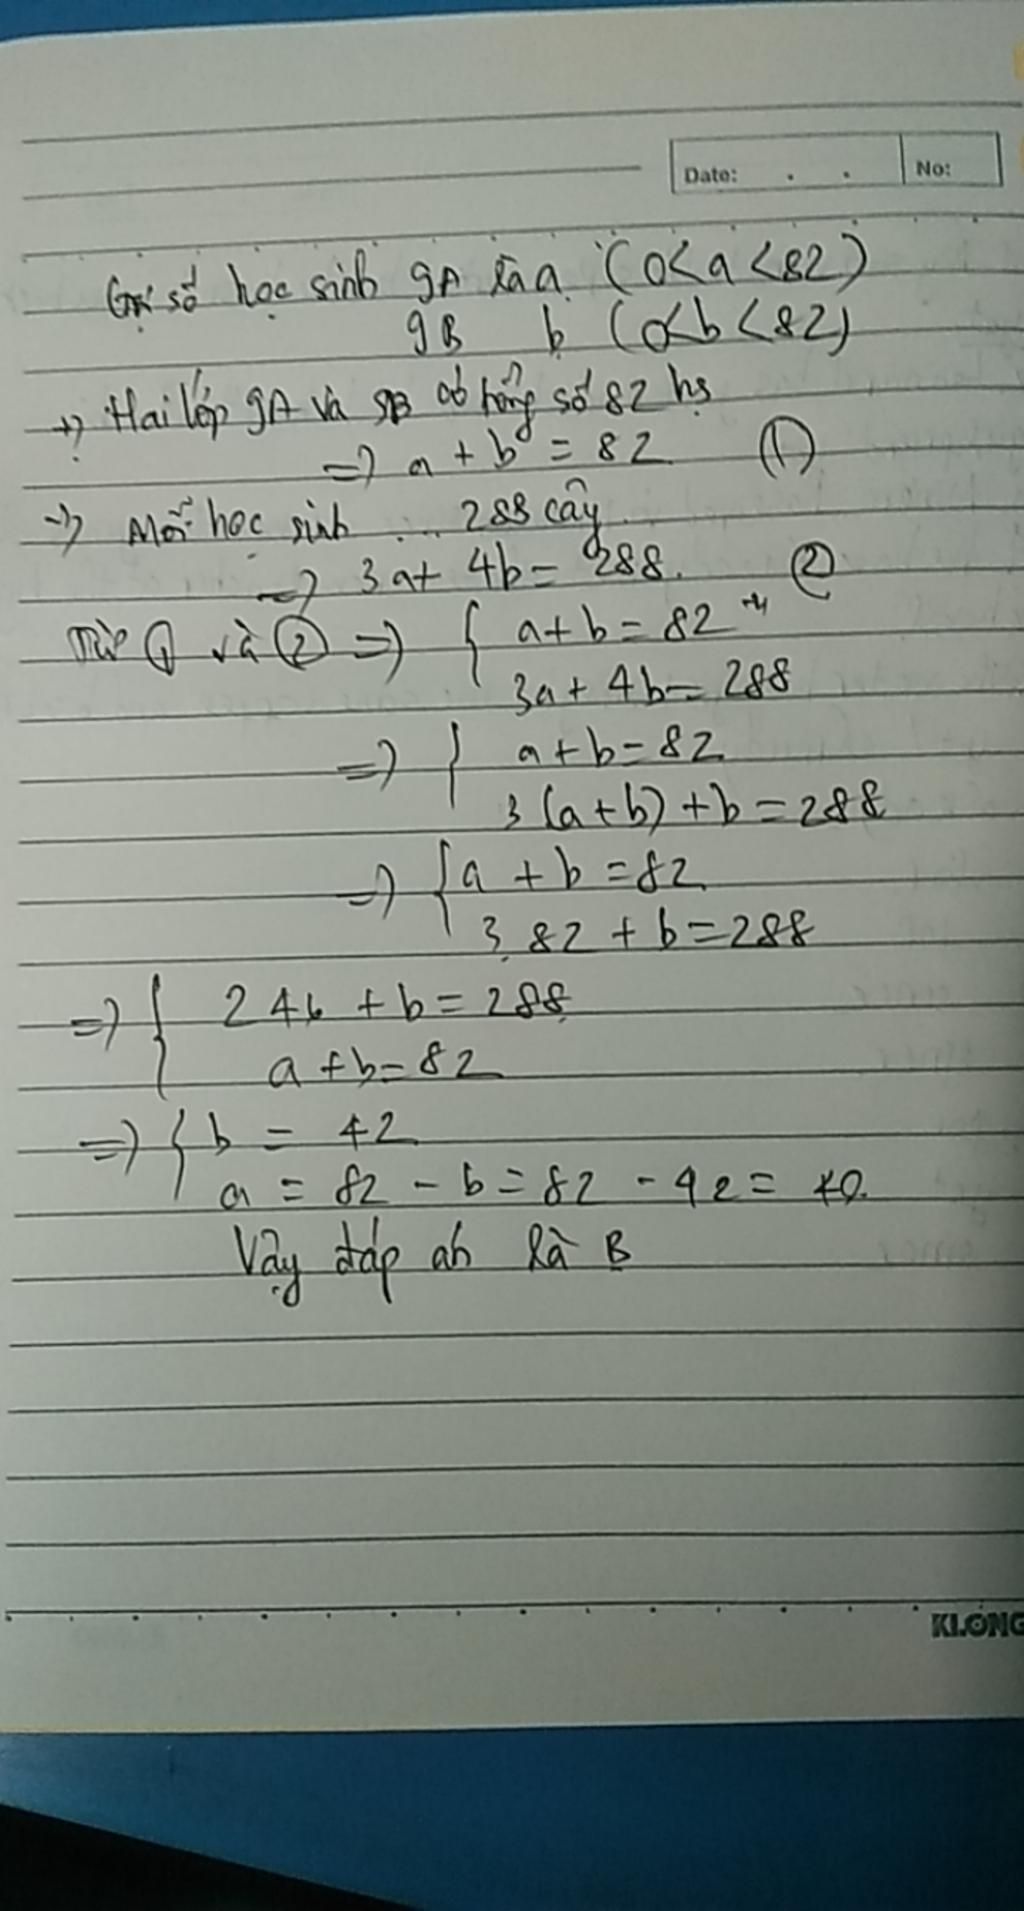 Date: . . No:
Gọi số học sinh 9A là a (0<a<82)
9B b (0<b<82)
+) Hai lớp 9A và 9B có tổng số 82 hs
=) a + b = 82 (1)
+) Mỗi học sinh ... 288 cây
=) 3a+ 4b= 288. (2)
Từ (1) và (2) =) { a+b=82
3a+ 4b= 288
=) { a+b=82
3(a+b)+b=288
=) { a + b =82
3.82 + b=288
=) { 246 + b=288
a+b=82
=) { b = 42
a = 82 - b = 82 - 42 = 40.
Vậy đáp án là B
KLONG